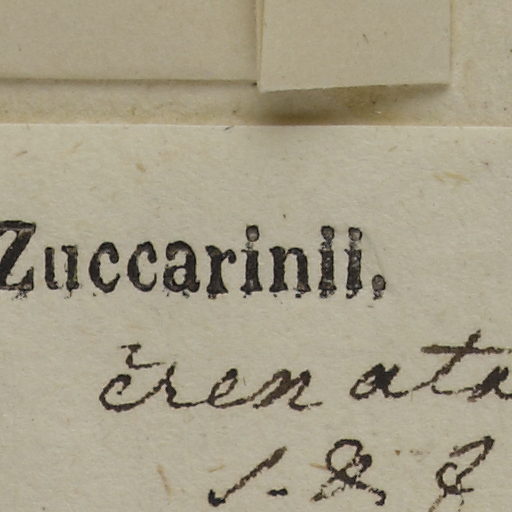 Zuccarinii.
crenata
S. &